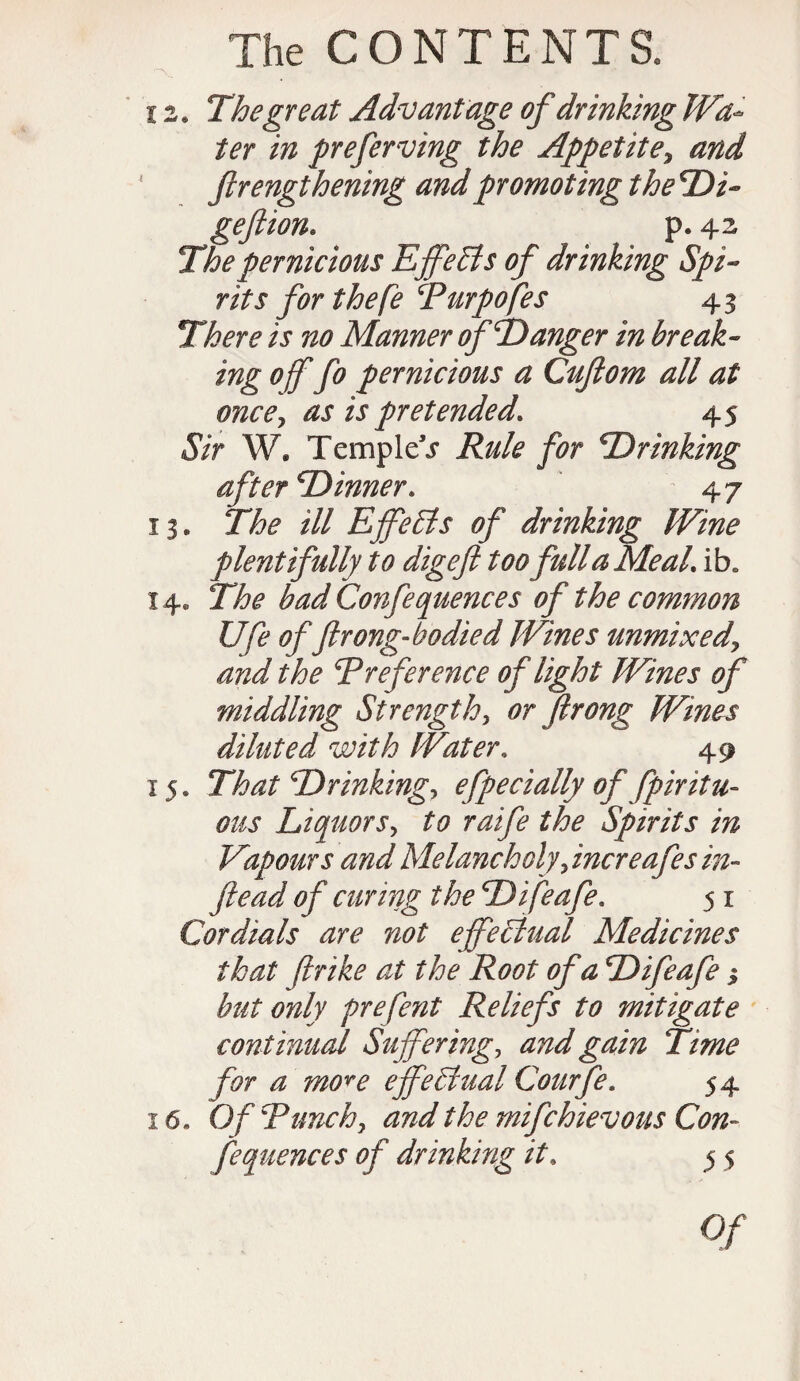 The CONTENTS.
12. The great Advantage of drinking Wa-
ter in preſerving the Appetite, and
ſtrengthening and promoting the Di-
geſtion. p. 42
The pernicious Effects of drinking Spi-
rits for theſe Purpoſes 43
There is no Manner of Danger in break-
ing off ſo pernicious a Cuſtom all at
once, as is pretended. 45
Sir W. Temple's Rule for Drinking
after Dinner. 47
13. The ill Effects of drinking Wine
plentifully to digeſt too full a Meal. ib.
14. The bad Conſequences of the common
Uſe of ſtrong-bodied Wines unmixed,
and the Preference of light Wines of
middling Strength, or ſtrong Wines
diluted with Water. 49
15. That Drinking, eſpecially of ſpiritu-
ous Liquors, to raiſe the Spirits in
Vapours and Melancholy, increaſes in-
ſtead of curing the Diſeaſe. 51
Cordials are not effectual Medicines
that ſtrike at the Root of a Diſeaſe;
but only preſent Reliefs to mitigate
continual Suffering, and gain Time
for a more effectual Courſe. 54
16. Of Punch, and the miſchievous Con-
ſequences of drinking it. 55
Of